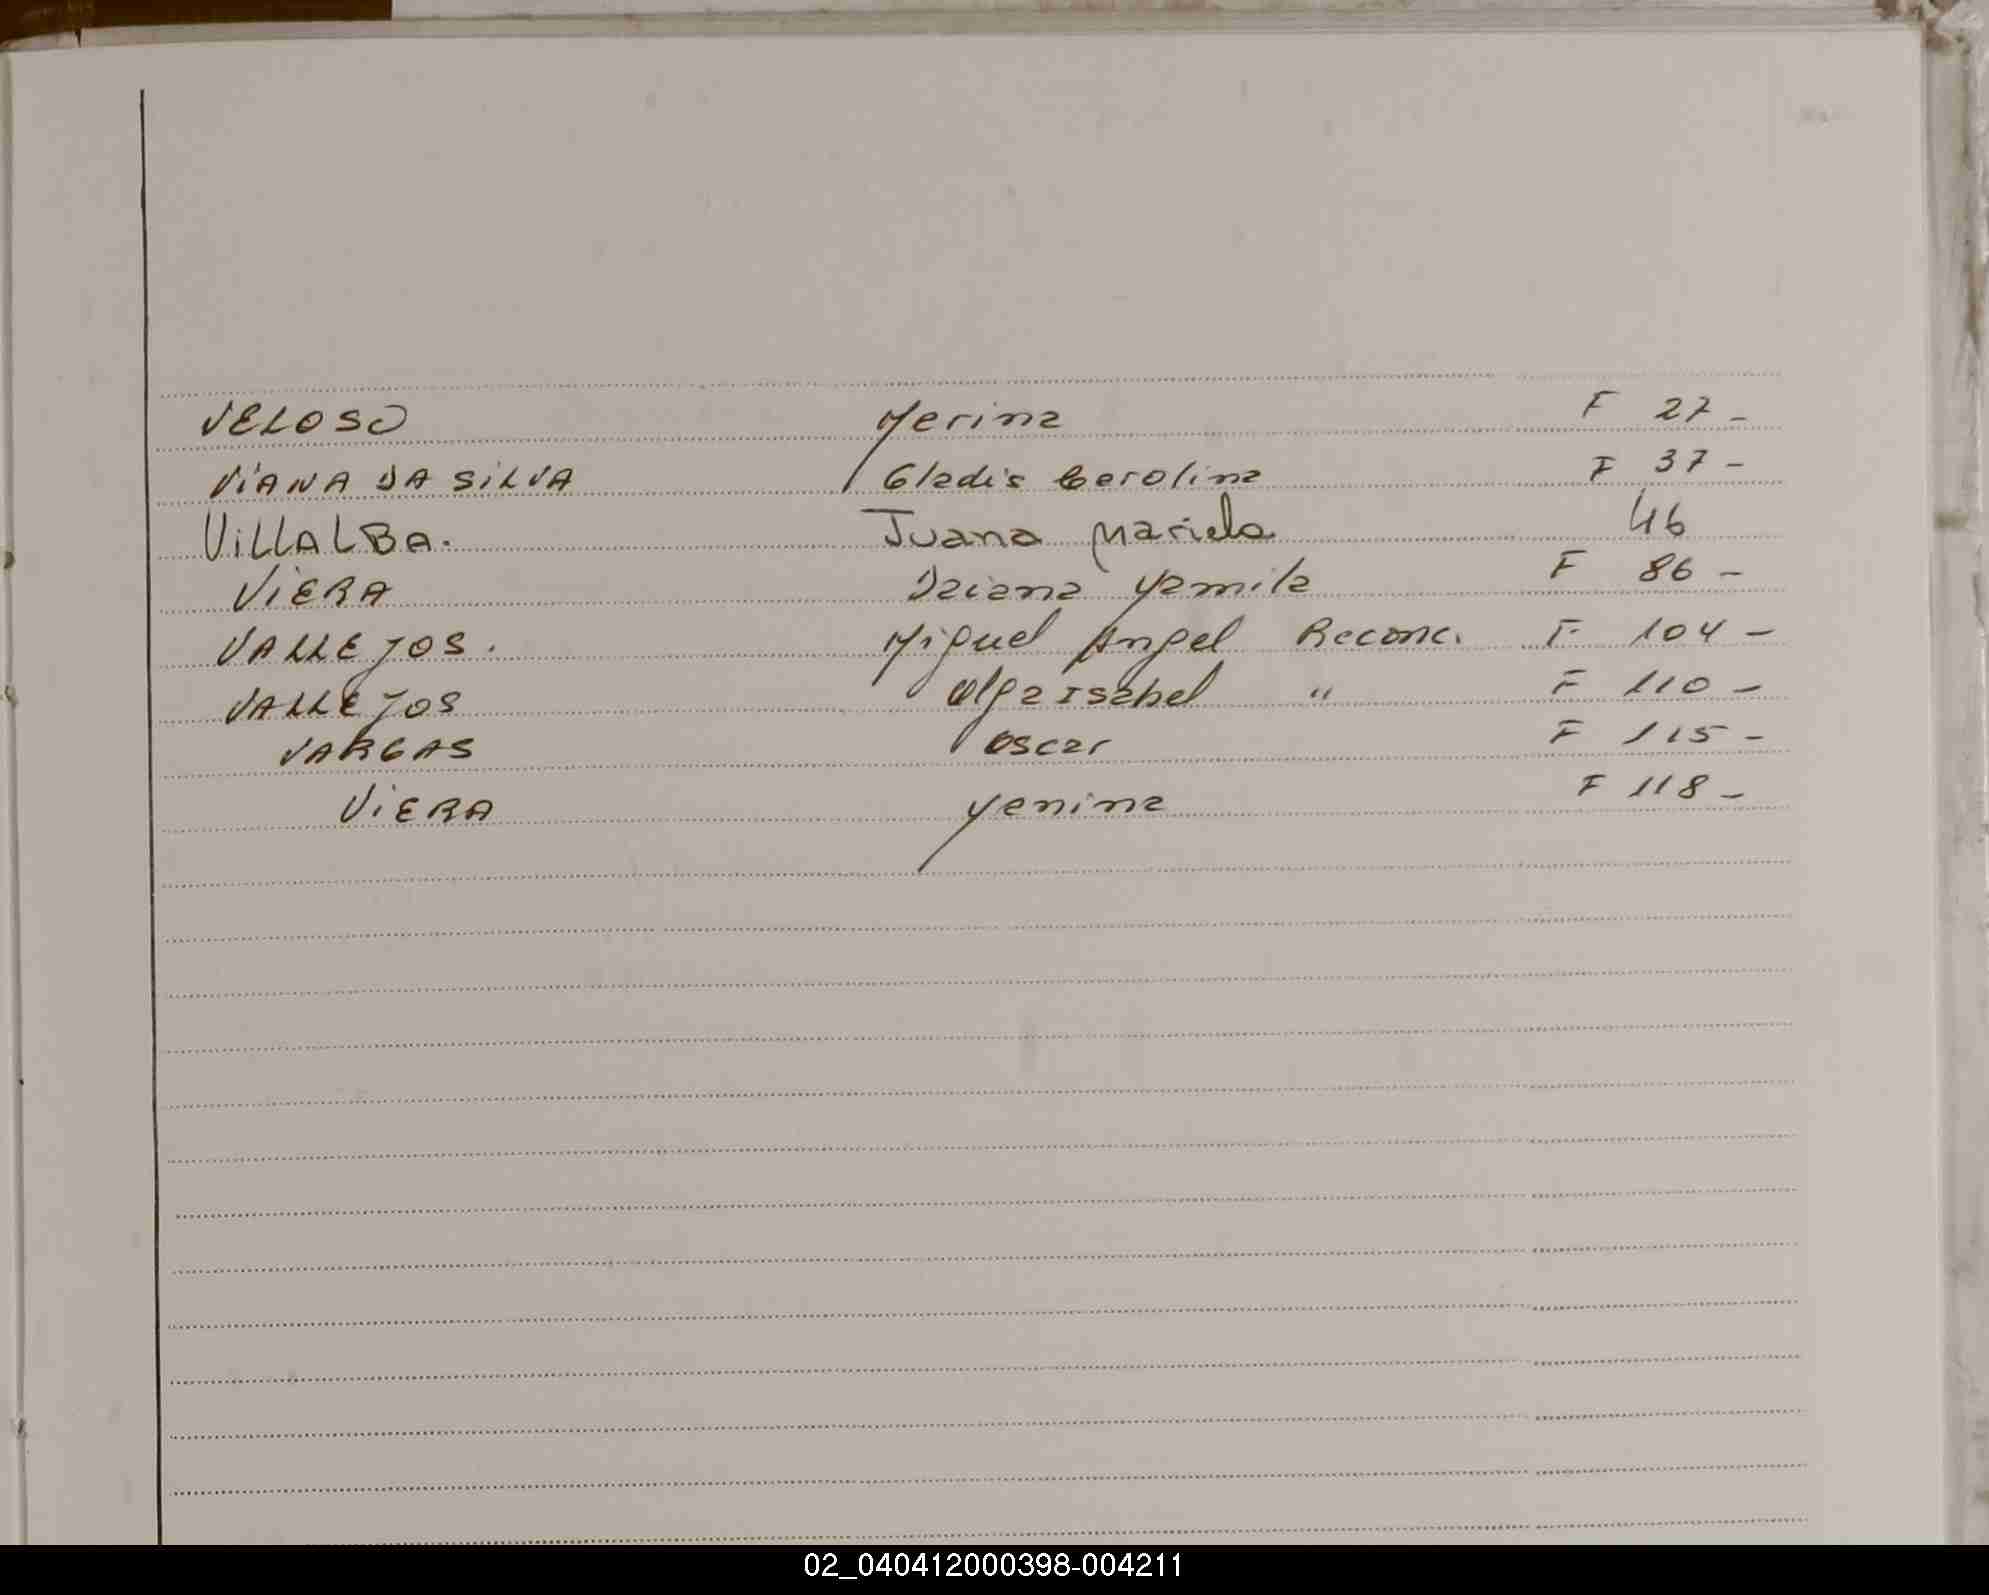 VELOSO Marina F 27-
ViANA DA SiLVA Gladis Carolina F 37-
ViLLALBA. Juana Mariela 46
ViERA Daiana Yamila F 86-
VALLEJOS. Miguel Angel Reconc. F. 104-
VALLEJOS Olga Isabel " F 110-
VARGAS Oscar F 115-
ViERA Yanina F 118-
02_040412000398-004211